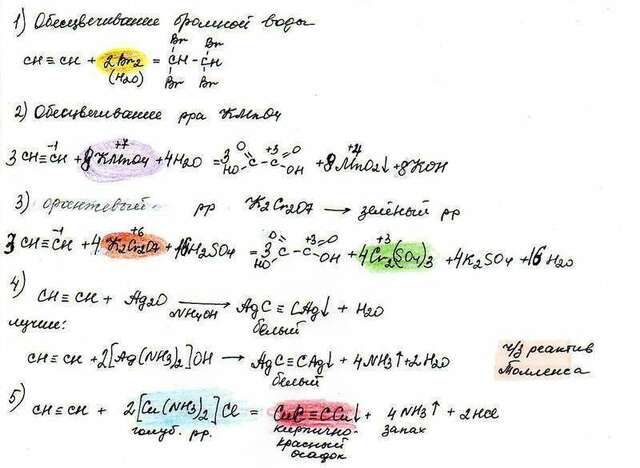 1) Обесцвечивание бромной воды
Br Br
CH≡CH + 2Br2 = CH-CH
(H2O) Br Br
2) Обесцвечивание рра KMnO4
3CH≡CH + 8KMnO4 + 4H2O = 3 HO-C(=O)-C(=O)-OH + 8MnO2↓ + 8KOH
-1 +7 +3 +4
3) оранжевый рр K2Cr2O7 → зелёный рр
3CH≡CH + 4K2Cr2O7 + 16H2SO4 = 3 HO-C(=O)-C(=O)-OH + 4Cr2(SO4)3 + 4K2SO4 + 16H2O
-1 +6 +3 +3
4) CH≡CH + Ag2O → AgC≡CAg↓ + H2O
NH4OH белый
лучше:
CH≡CH + 2[Ag(NH3)2]OH → AgC≡CAg↓ + 4NH3↑ + 2H2O
белый
ч/з реактив
Толленса
5) CH≡CH + 2[Cu(NH3)2]Cl = CuC≡CCu↓ + 4NH3↑ + 2HCl
голуб. рр. кирпично- запах
красный
осадок